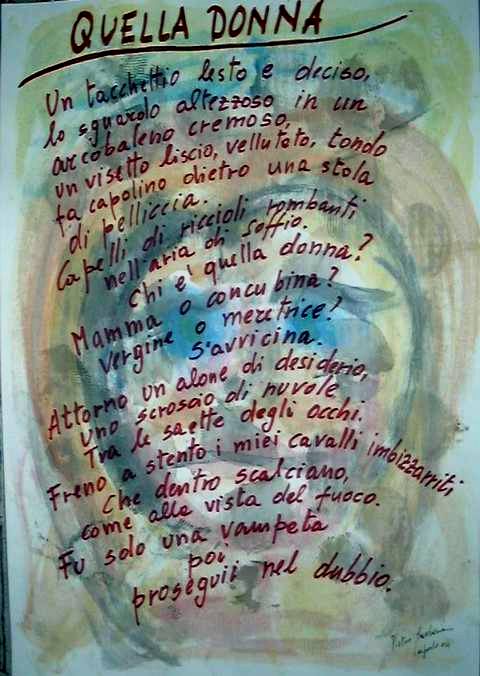 QUELLA DONNA
Un tacchettio lesto e deciso,
lo sguardo altezzoso in un
arcobaleno cremoso,
un visetto liscio, vellutato, tondo
fa capolino dietro una stola
di pelliccia.
Capelli di riccioli rombanti
nell'aria di soffio.
Chi e' quella donna?
Mamma o concubina?
Vergine o meretrice?
S'avvicina.
Attorno un alone di desiderio,
uno scroscio di nuvole
Tra le saette degli occhi.
Freno a stento i miei cavalli imbizzarriti
Che dentro scalciano,
come alla vista del fuoco.
Fu solo una vampata
poi
proseguii nel dubbio.